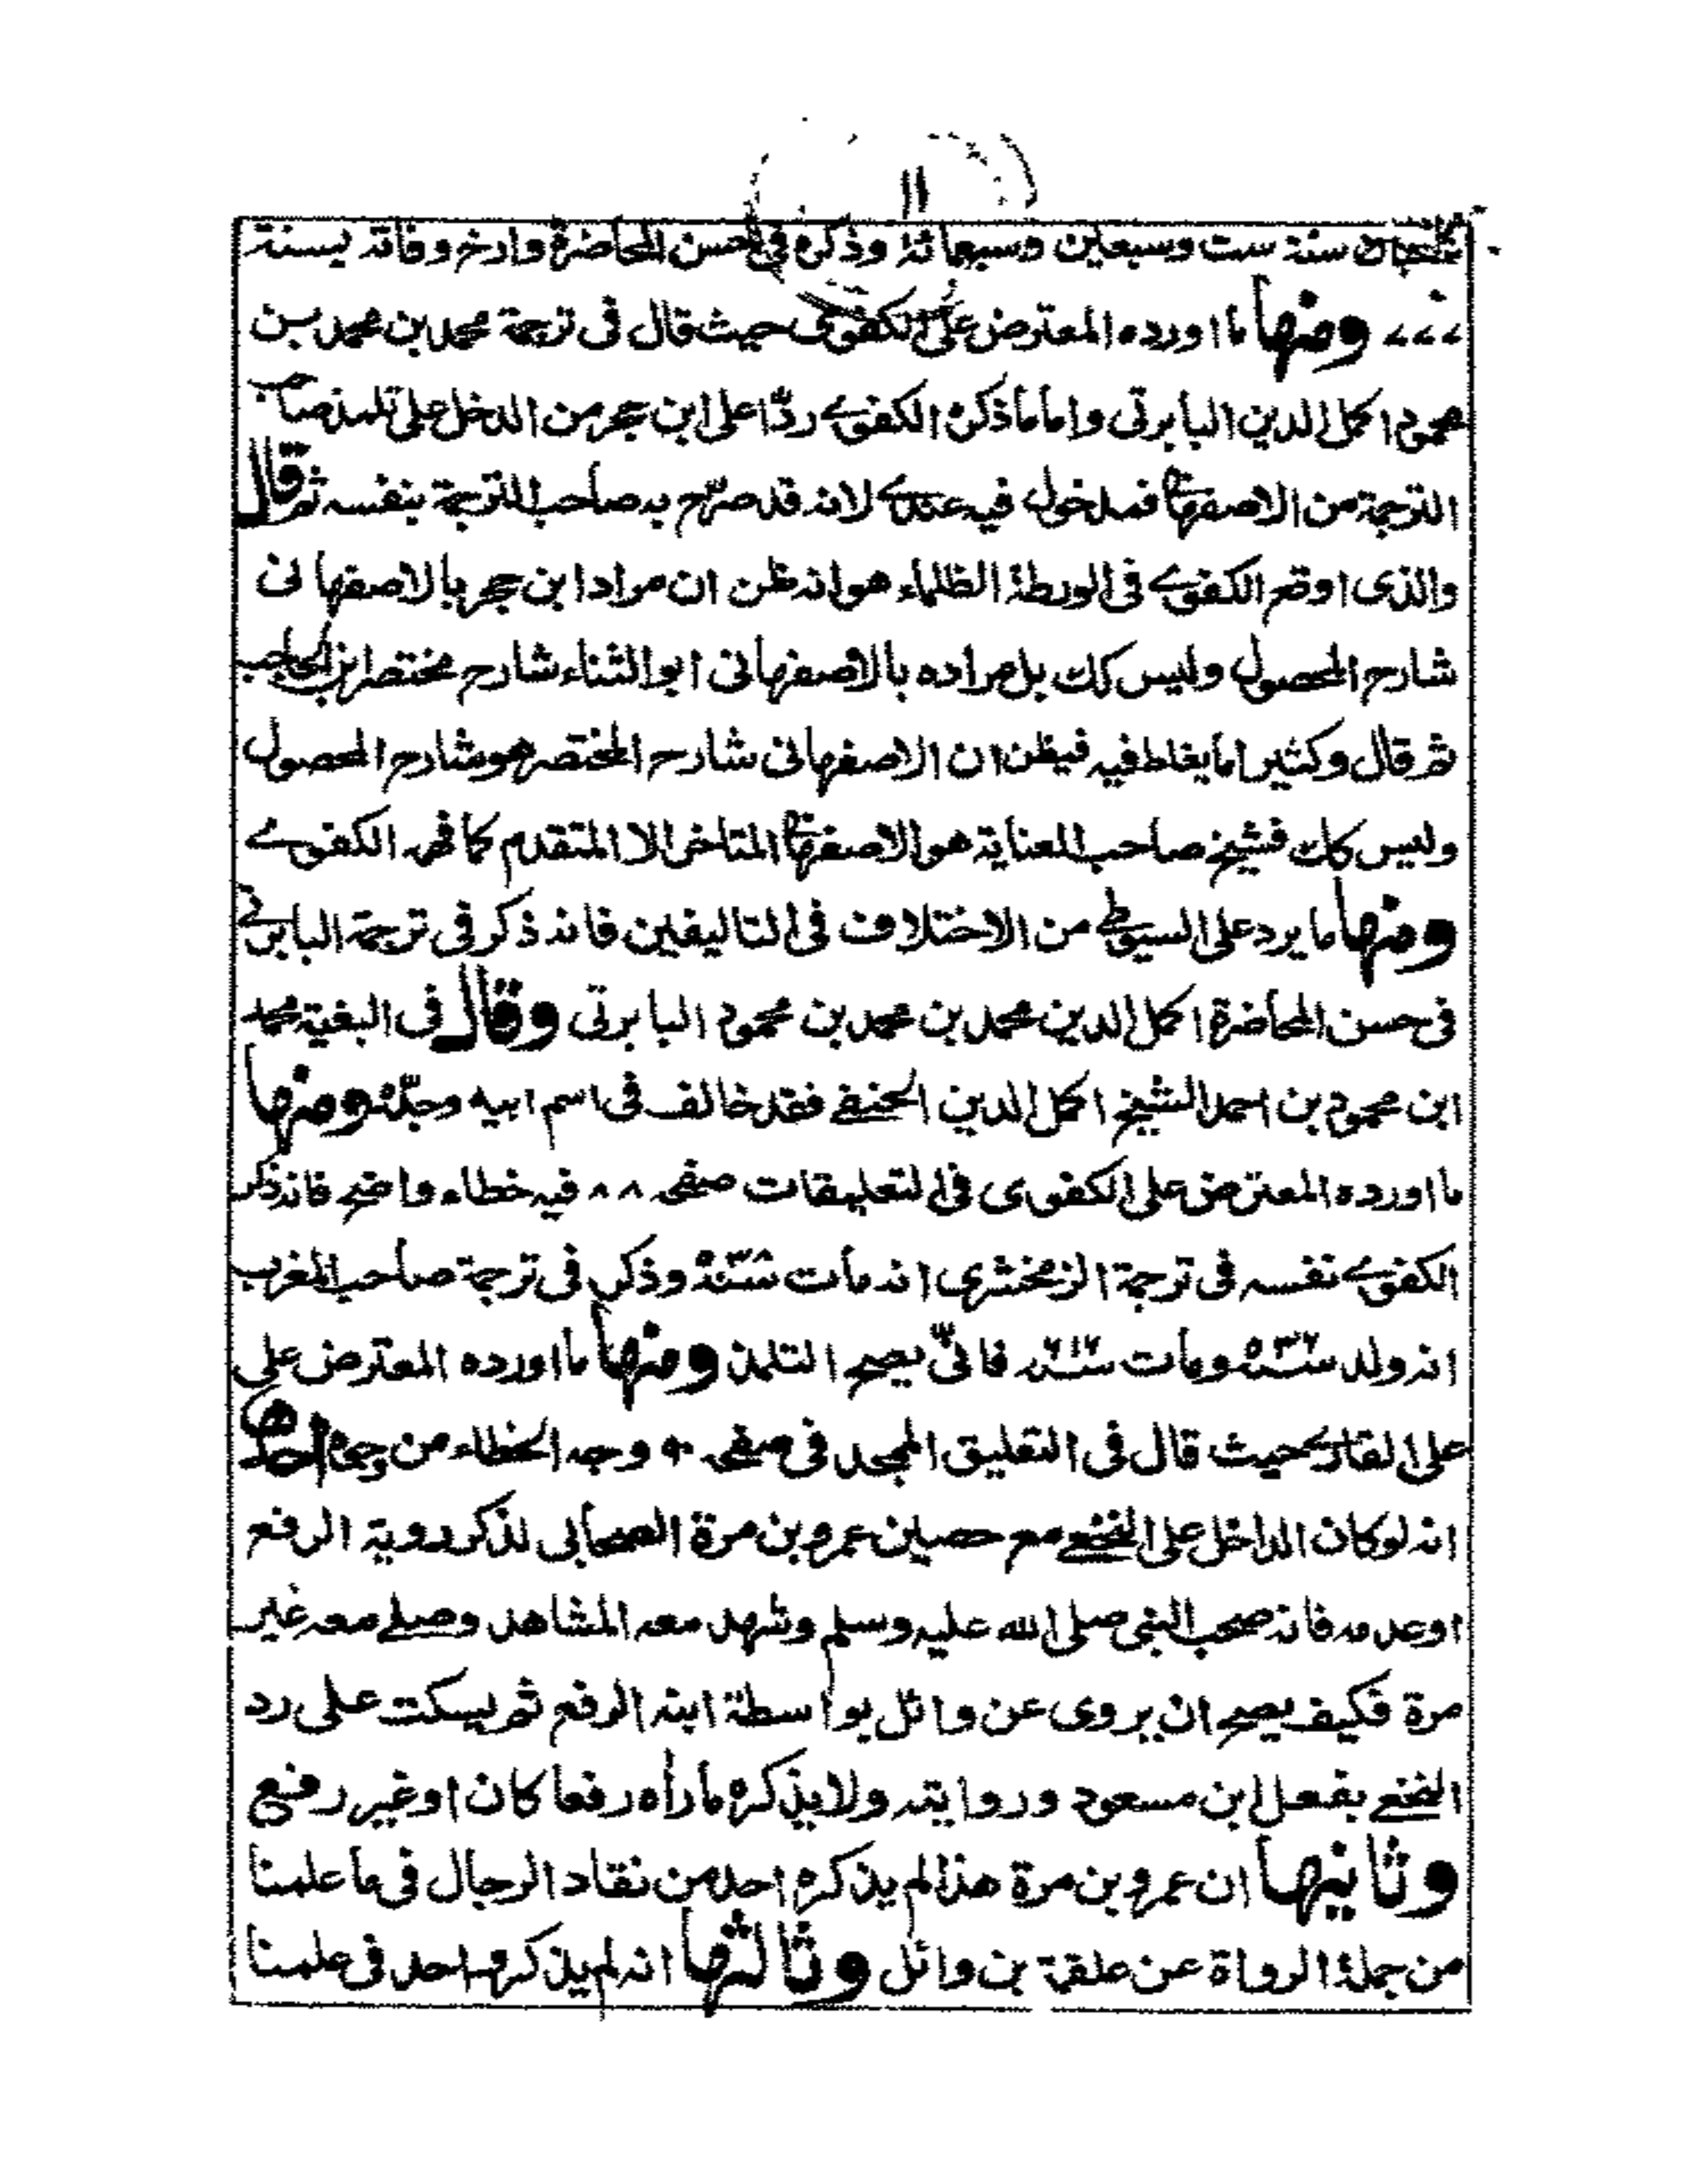 ١١
سنة ست وسبعين وسبعمائة وذكره فى حسن المحاضرة وارخ وفاته بسنة
٧٧٧ ومنها ما اورده المعترض على الكفوى حيث قال فى ترجمة محمد بن محمد بن
محمود اكمل الدين البابرتى واما ما ذكره الكفوے ردّا على ابن حجر من الدخل على تلمذ صاحب
الترجمة من الاصفهانى فمدخول فيه عندے لانه قد صرّح به صاحب الترجمة بنفسه ثم قال
والذى اوقع الكفوے فى الورطة الظلماء هو انه ظن ان مراد ابن حجر بالاصفهانى
شارح المحصول وليس كك بل مراده بالاصفهانى ابو الثناء شارح مختصر ابن الحاجب
ثم قال وكثيرا ما يغلط فيه فيظن ان الاصفهانى شارح المختصر هو شارح المحصول
وليس كك فشيخ صاحب العناية هو الاصفهانى المتاخر لا المتقدم كما فهمه الكفوے
ومنها ما يرد على السيوطے من الاختلاف فى التاليفين فانه ذكر فى ترجمة البابرتے
فى حسن المحاضرة اكمل الدين محمد بن محمد بن محمود البابرتى وقال فى البغية محمد
ابن محمود بن احمد الشيخ اكمل الدين الحنفے فقد خالف فى اسم ابيه وجدّه ومنها
ما اورده المعترض على الكفوى فى التعليقات صفحه ٨٨ فيه خطاء واضح فانه ذكر
الكفوے نفسه فى ترجمة الزمخشرى انه مات وذكر فى ترجمة صاحب المغرب
انه ولد ومات فانّى يصح التلمذ ومنها ما اورده المعترض على
على القارے حيث قال فى التعليق الممجد فى صفحه وجه الخطاء من وجوه احدها
انه لو كان الداخل على النخعے مع حصين عمرو بن مرة الصحابى لذكر روية الرفع
او عدمه فانه صحب النبى صلى الله عليه وسلم وشهد معه المشاهد وصلے معه غير
مرة فكيف يصح ان يروى عن وائل بواسطة ابنه الرفع ثم يسكت على رد
النخعے بفعل ابن مسعود وروايته ولا يذكره ما رأه رفعا كان او غير رفع
وثانيها ان عمرو بن مرة هذا لم يذكره احد من نقاد الرجال فى ما علمنا
من جملة الرواة عن علقمة بن وائل وثالثها انه لم يذكره احد فى علمنا